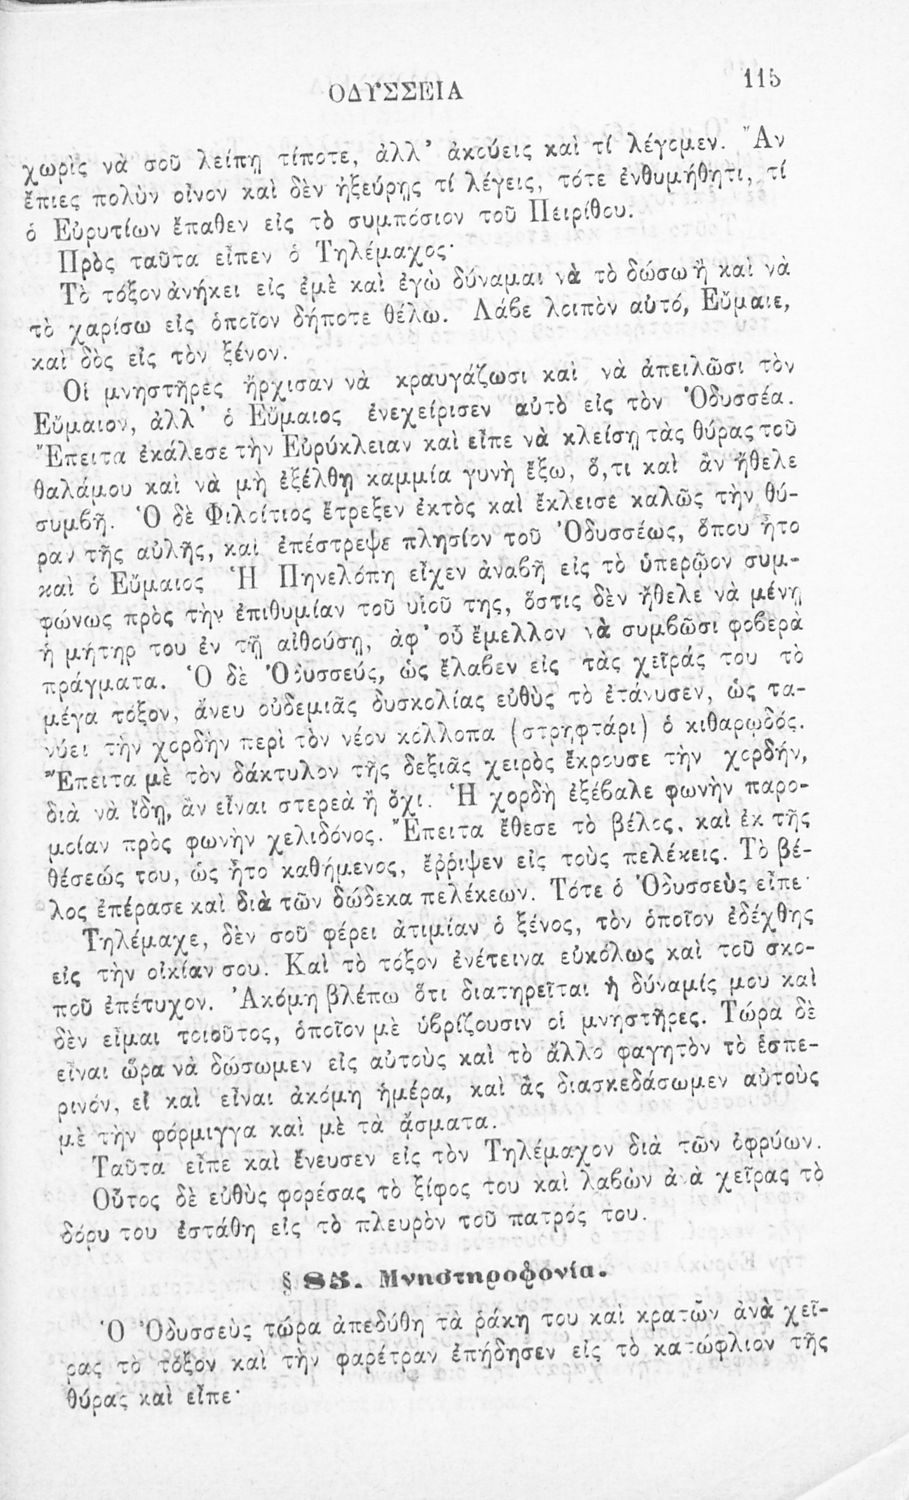 ΟΔΥΣΣΕΙΑ 115
χωρὶς νὰ σοῦ λείπῃ τίποτε, ἀλλ’ ἀκούεις καὶ τί λέγομεν. Ἂν
ἔπιες πολὺν οἶνον καὶ δὲν ἠξεύρῃς τί λέγεις, τότε ἐνθυμήθητι, τί
ὁ Εὐρυτίων ἔπαθεν εἰς τὸ συμπόσιον τοῦ Πειρίθου.
Πρὸς ταῦτα εἶπεν ὁ Τηλέμαχος·
Τὸ τόξον ἀνήκει εἰς ἐμὲ καὶ ἐγὼ δύναμαι νὰ τὸ δώσω ἢ καὶ νὰ
τὸ χαρίσω εἰς ὁποῖον δήποτε θέλω. Λάβε λοιπὸν αὐτό, Εὔμαιε,
καὶ δὸς εἰς τὸν ξένον.
Οἱ μνηστῆρες ἤρχισαν νὰ κραυγάζωσι καὶ νὰ ἀπειλῶσι τὸν
Εὔμαιον, ἀλλ’ ὁ Εὔμαιος ἐνεχείρισεν αὐτὸ εἰς τὸν Ὀδυσσέα.
Ἔπειτα ἐκάλεσε τὴν Εὐρύκλειαν καὶ εἶπε νὰ κλείσῃ τὰς θύρας τοῦ
θαλάμου καὶ νὰ μὴ ἐξέλθῃ καμμία γυνὴ ἔξω, ὅ,τι καὶ ἂν ἤθελε
συμβῆ. Ὁ δὲ Φιλοίτιος ἔτρεξεν ἐκτὸς καὶ ἔκλεισε καλῶς τὴν θύ-
ραν τῆς αὐλῆς, καὶ ἐπέστρεψε πλησίον τοῦ Ὀδυσσέως, ὅπου ἦτο
καὶ ὁ Εὔμαιος Ἡ Πηνελόπη εἶχεν ἀναβῆ εἰς τὸ ὑπερῷον συμ-
φώνως πρὸς τὴν ἐπιθυμίαν τοῦ υἱοῦ της, ὅστις δὲν ἤθελε νὰ μένῃ
ἡ μήτηρ του ἐν τῇ αἰθούσῃ, ἀφ’ οὗ ἔμελλον νὰ συμβῶσι φοβερὰ
πράγματα. Ὁ δὲ Ὀδυσσεύς, ὡς ἔλαβεν εἰς τὰς χεῖράς του τὸ
μέγα τόξον, ἄνευ οὐδεμιᾶς δυσκολίας εὐθὺς τὸ ἐτάνυσεν, ὡς τα-
νύει τὴν χορδὴν περὶ τὸν νέον κόλλοπα (στρηφτάρι) ὁ κιθαρῳδός.
Ἔπειτα μὲ τὸν δάκτυλον τῆς δεξιᾶς χειρὸς ἔκρουσε τὴν χορδήν,
διὰ νὰ ἴδῃ, ἂν εἶναι στερεὰ ἢ ὄχι. Ἡ χορδὴ ἐξέβαλε φωνὴν παρο-
μοίαν πρὸς φωνὴν χελιδόνος. Ἔπειτα ἔθεσε τὸ βέλος, καὶ ἐκ τῆς
θέσεώς του, ὡς ἦτο καθήμενος, ἔῤῥιψεν εἰς τοὺς πελέκεις. Τὸ βέ-
λος ἐπέρασε καὶ διὰ τῶν δώδεκα πελέκεων. Τότε ὁ Ὀδυσσεὺς εἶπε·
Τηλέμαχε, δὲν σοῦ φέρει ἀτιμίαν ὁ ξένος, τὸν ὁποῖον ἐδέχθης
εἰς τὴν οἰκίαν σου. Καὶ τὸ τόξον ἐνέτεινα εὐκόλως καὶ τοῦ σκο-
ποῦ ἐπέτυχον. Ἀκόμη βλέπω ὅτι διατηρεῖται ἡ δύναμίς μου καὶ
δὲν εἶμαι τοιοῦτος, ὁποῖον μὲ ὑβρίζουσιν οἱ μνηστῆρες. Τώρα δὲ
εἶναι ὥρα νὰ δώσωμεν εἰς αὐτοὺς καὶ τὸ ἄλλο φαγητὸν τὸ ἑσπε-
ρινόν, εἰ καὶ εἶναι ἀκόμη ἡμέρα, καὶ ἂς διασκεδάσωμεν αὐτοὺς
μὲ τὴν φόρμιγγα καὶ μὲ τὰ ᾄσματα.
Ταῦτα εἶπε καὶ ἔνευσεν εἰς τὸν Τηλέμαχον διὰ τῶν ὀφρύων.
Οὗτος δὲ εὐθὺς φορέσας τὸ ξίφος του καὶ λαβὼν ἀνὰ χεῖρας τὸ
δόρυ του ἐστάθη εἰς τὸ πλευρὸν τοῦ πατρός του.
§ 85. Μνηστηροφονία.
Ὁ Ὀδυσσεὺς τώρα ἀπεδύθη τὰ ῥάκη του καὶ κρατῶν ἀνὰ χεῖ-
ρας τὸ τόξον καὶ τὴν φαρέτραν ἐπήδησεν εἰς τὸ κατώφλιον τῆς
θύρας καὶ εἶπε·